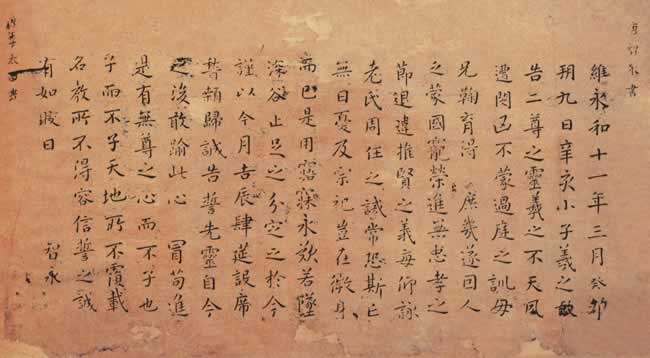 維永和十一年三月癸卯
朔九日辛亥小子羲之敢
告二尊之靈羲之不天夙
遭閔凶不蒙過庭之訓母
兄鞠育得庶幾遂因人
之蒙國寵榮進無忠孝之
節退違推賢之義每仰詠
老氏周任之誡常恐斯亡
無日憂及宗祀豈在微身
而已是用寤寐永歎若墜
深谷止足之分定之於今
謹以今月吉辰肆莚設席
稽顙歸誠告誓先靈自今
之後敢踰此心冒苟進
是有無尊之心而不子也
子而不子天地所不覆載
名教所不得容信誓之誠
有如皦日
智永